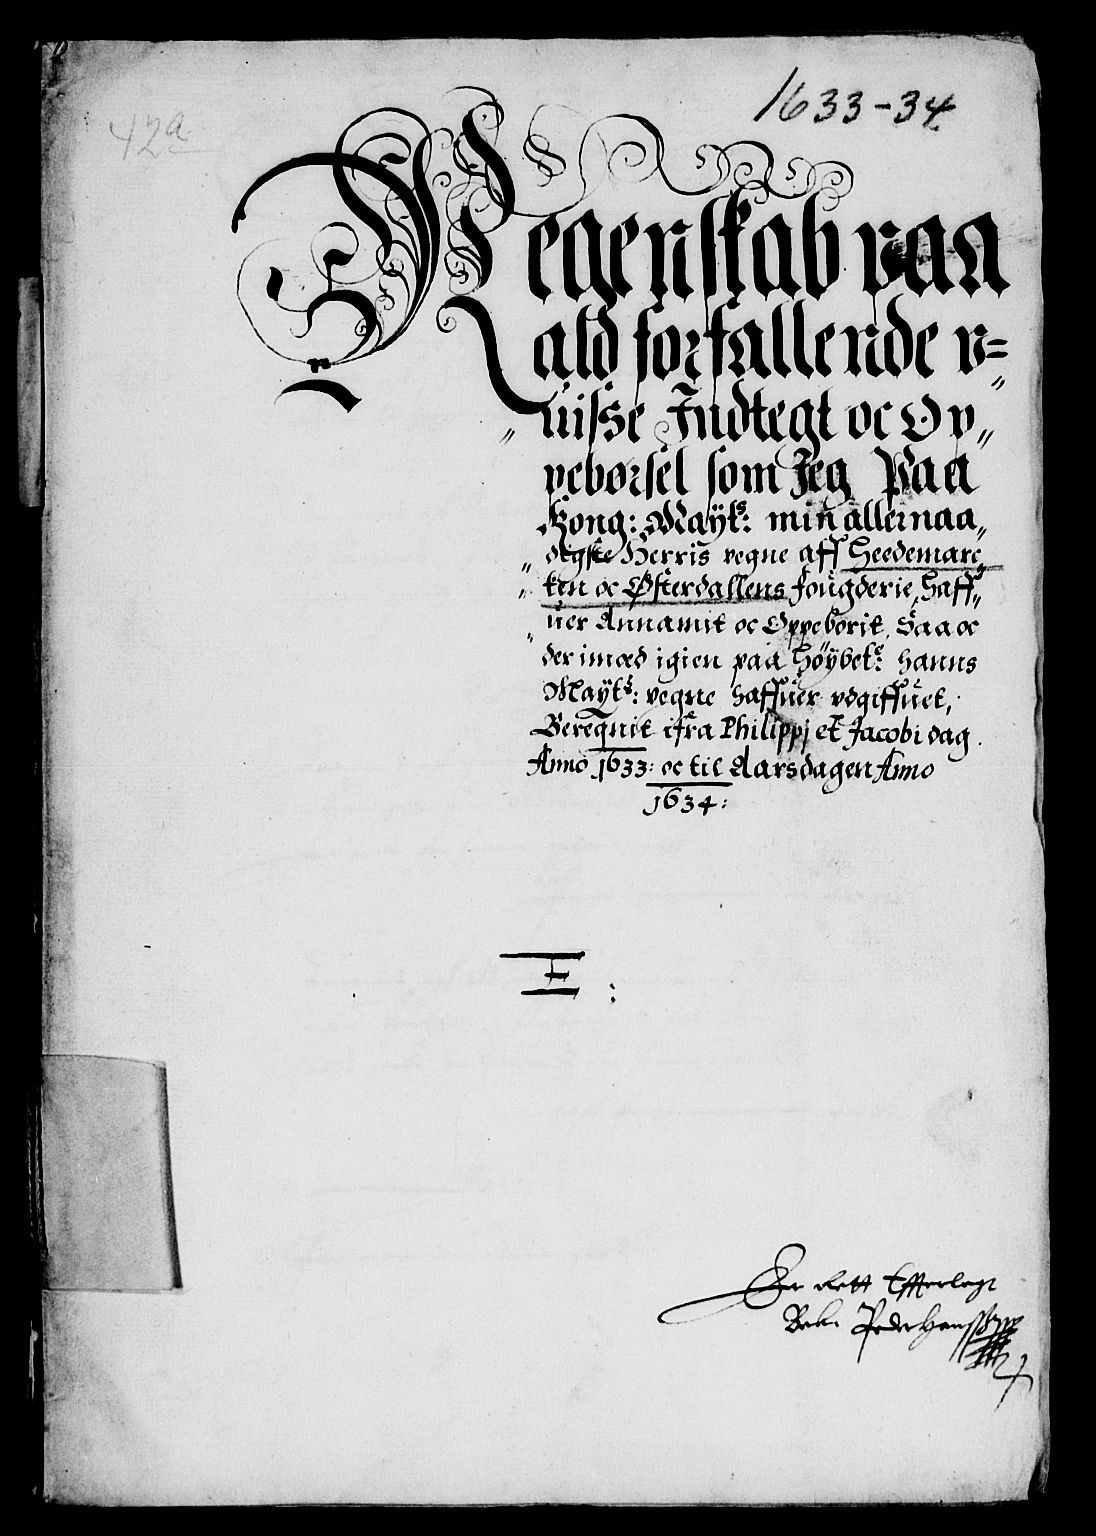 1633-34
42a
Regenskab paa
ald forfallende v=
"uisse Indtegt oc Op"
peborsel som Jeg Paa
Kong: Maÿtˢ: min allernaa„
„digste Herris vegne aff Heedemarc„
„ken oc Østerdallens fougderie, Haff„
„uer Annamit oc Oppeborit, Saa oc
der imod igien paa Høÿbetᵉ: hanns
Maÿtˢ: vegne haffuer vdgiffuet,
Berequit ifra Philippj et Jacobi dag
Anno 1633: oc til Aarsdagen Anno
1634:
E :
Er rett Efferlagt
Peder Hanssøn